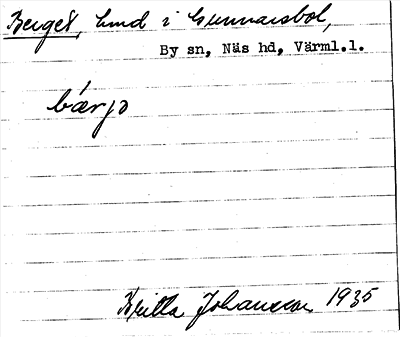 Berget, hmd i Gunnarsbol,
By sn, Näs hd, Värml.l.
bærjə
Britta Johansson 1935